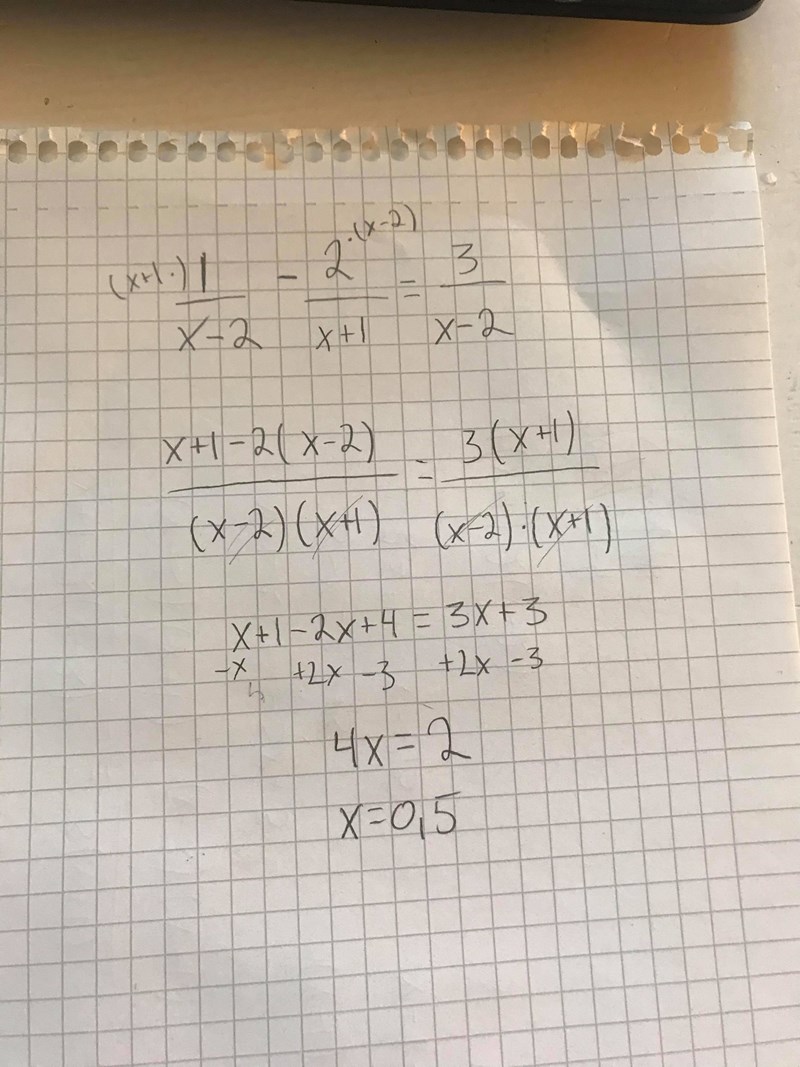 (x+1·) 1/(x-2) - 2·(x-2)/(x+1) = 3/(x-2)
(x+1-2(x-2))/((x-2)(x+1)) = 3(x+1)/((x-2)·(x+1))
x+1-2x+4 = 3x+3
-x +2x -3 +2x -3
4x=2
x=0,5